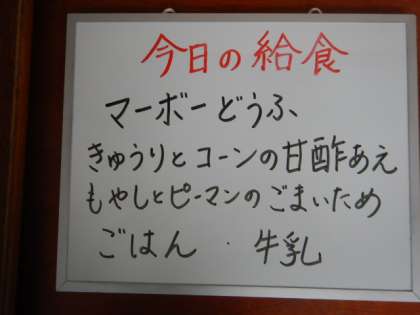 今日の給食
マーボーどうふ
きゅうりとコーンの甘酢あえ
もやしとピーマンのごまいため
ごはん ・ 牛乳